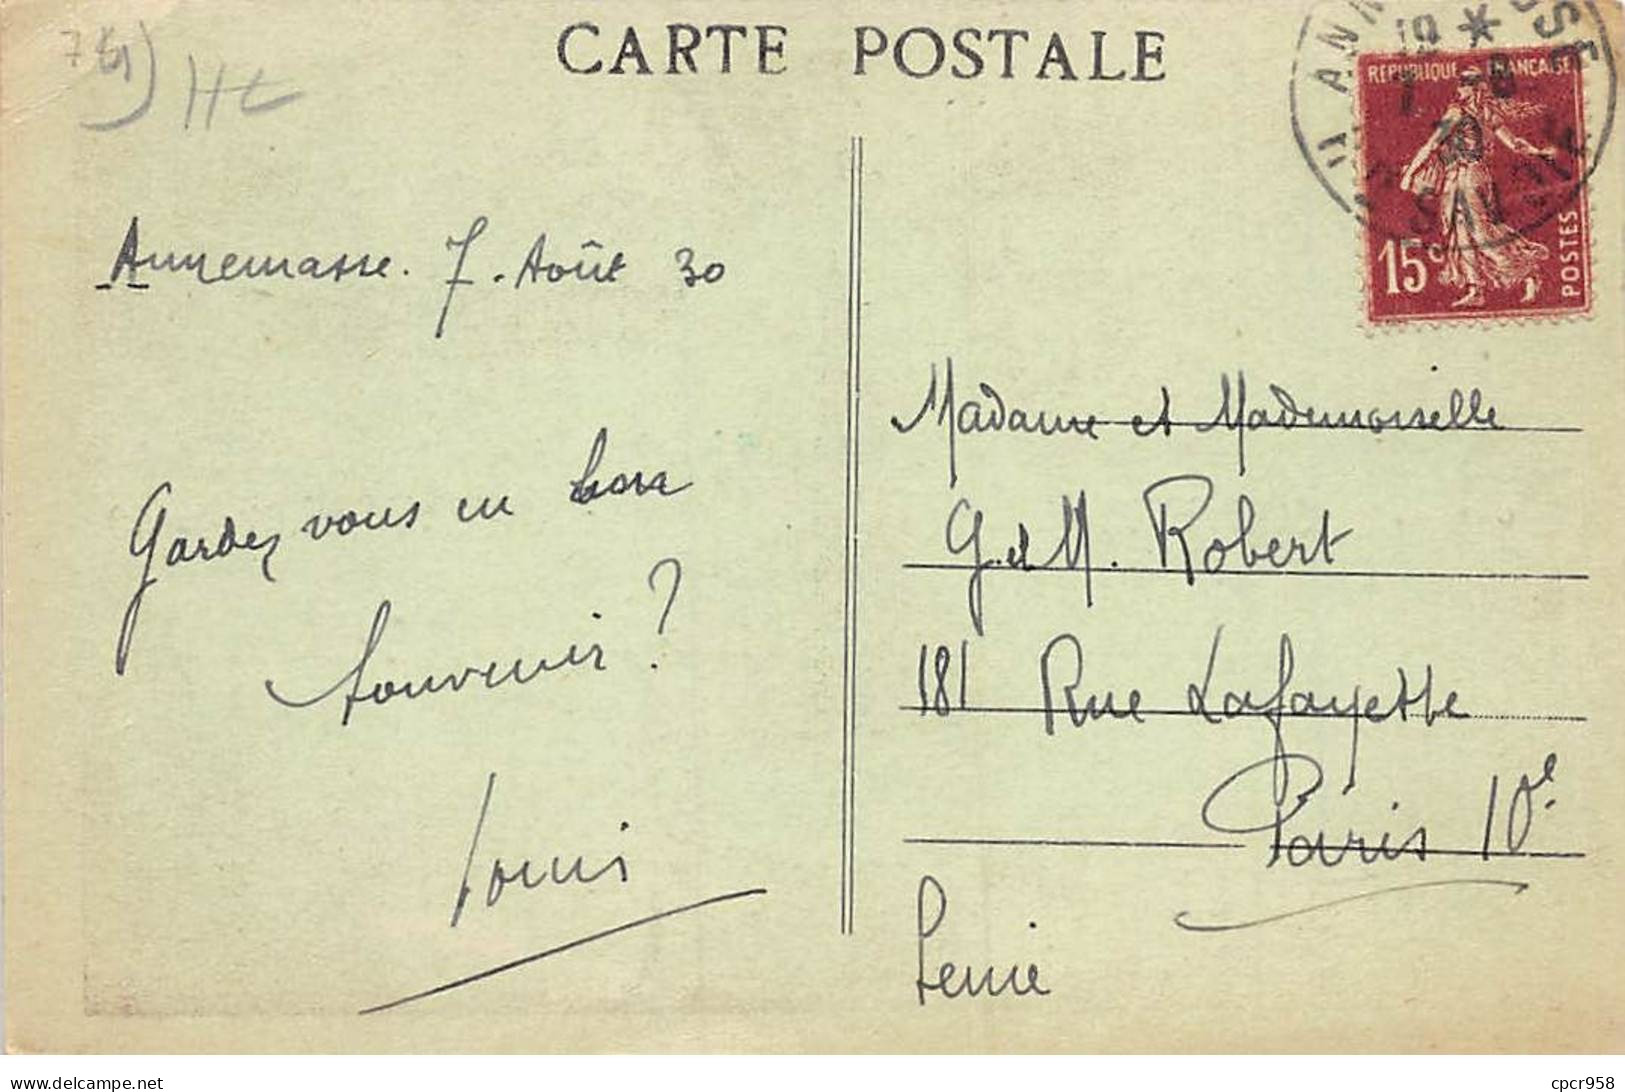 CARTE POSTALE
74)
HL
RÉPUBLIQUE FRANÇAISE
15c
POSTES
30
Annemasse. 7. Août 30
Gardez vous en bon
souvenir ?
Louis
Madame et Mademoiselle
G. et M. Robert
181 Rue Lafayette
Paris 10e.
Seine
delcampe.net
cpcr958